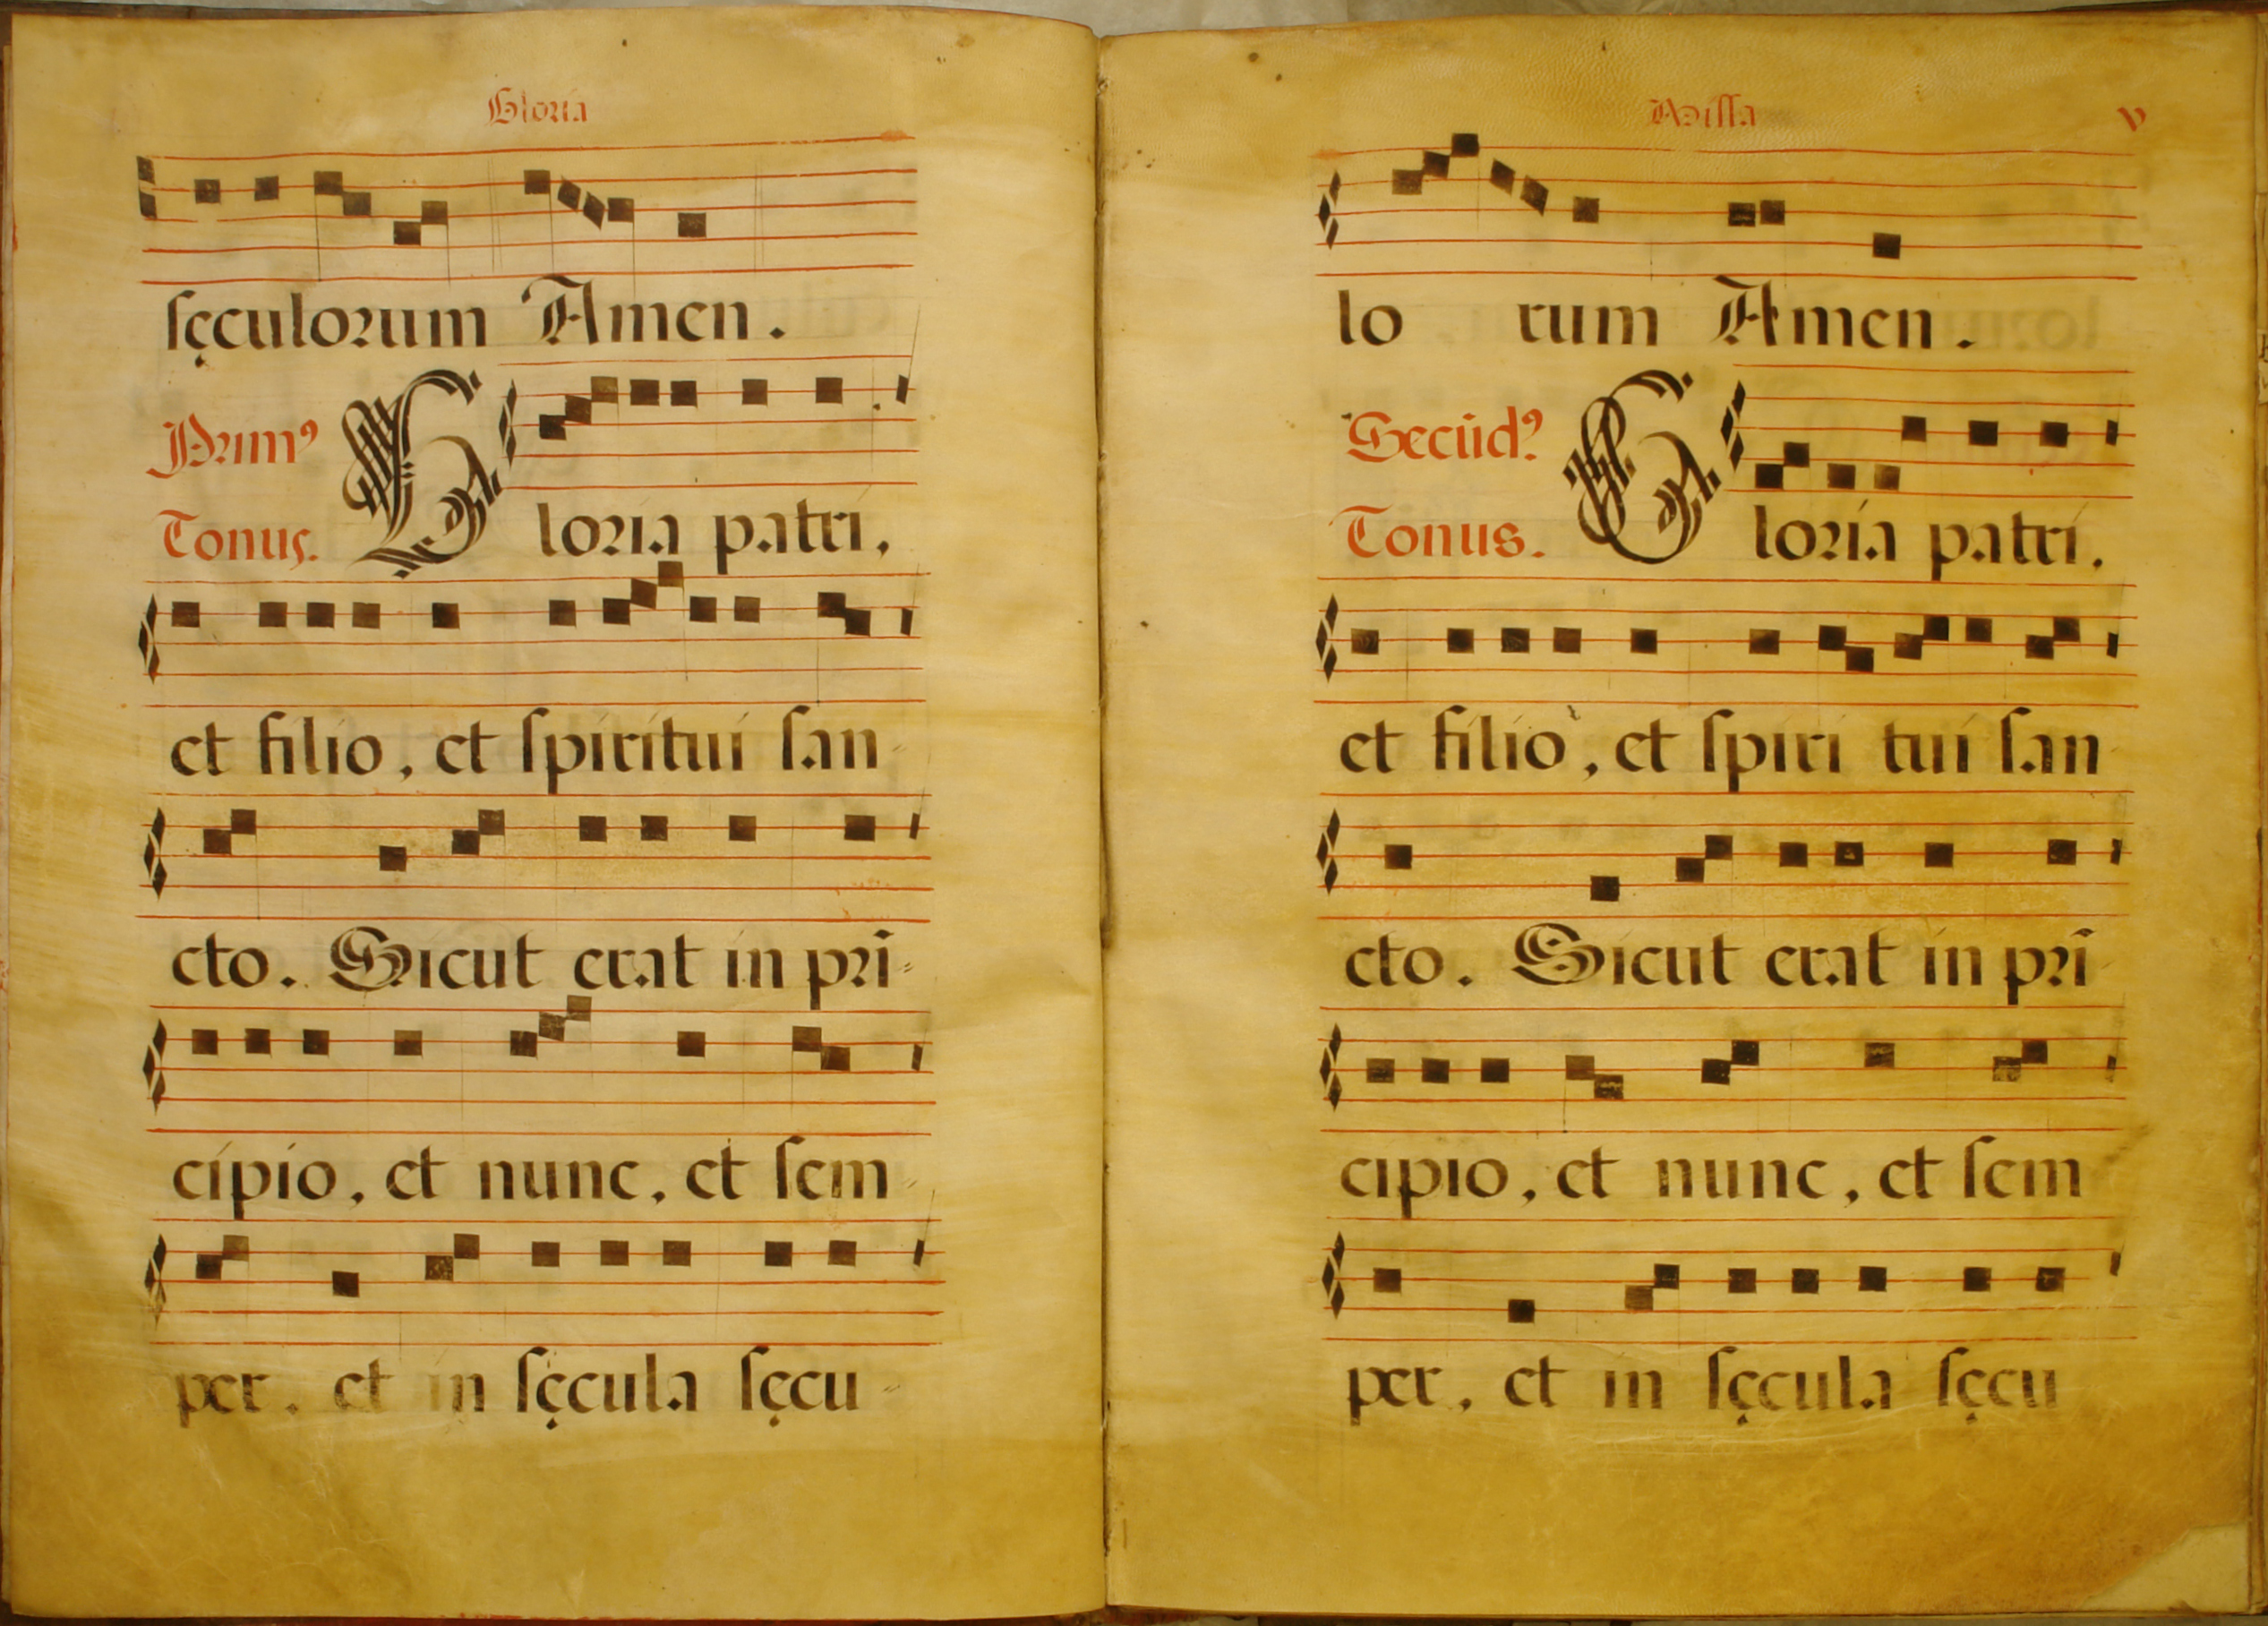 Gloria
ſęculorum Amen.
Primꝰ
Tonus.
Gloria patri,
et filio, et ſpiritui ſan-
cto. Sicut erat in pri-
cipio, et nunc, et ſem-
per, et in ſęcula ſęcu-
Miſſa
v
lo rum Amen.
Secūdꝰ
Tonus.
Gloria patri,
et filio, et ſpiri tui ſan
cto. Sicut erat in pri
cipio, et nunc, et ſem
per, et in ſęcula ſęcu